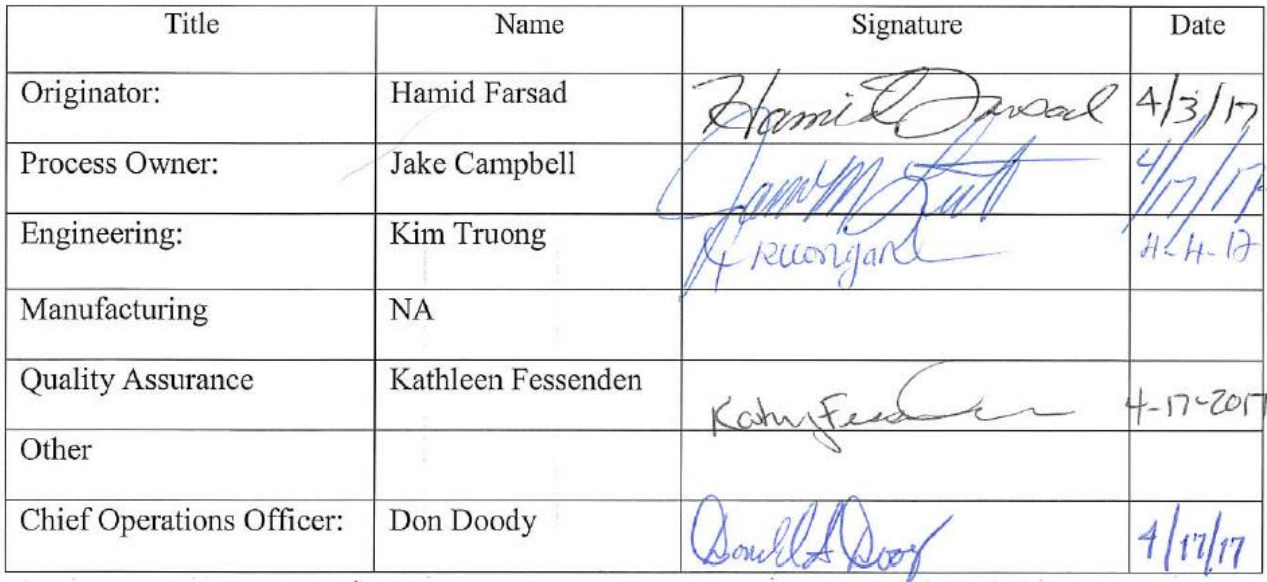 Title Name Signature Date
Originator: Hamid Farsad Hamid Farsad 4/3/17
Process Owner: Jake Campbell 4/17/17
Engineering: Kim Truong 4-4-17
Manufacturing NA
Quality Assurance Kathleen Fessenden Kathy 4-17-2017
Other
Chief Operations Officer: Don Doody Donald A Doody 4/17/17